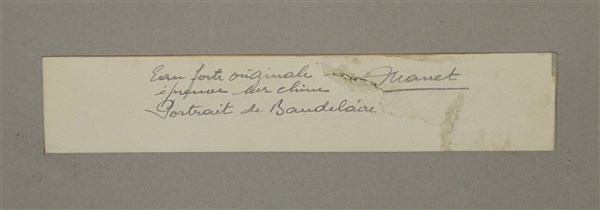 Eau forte originale Manet
épreuve sur chine
Portrait de Baudelaire